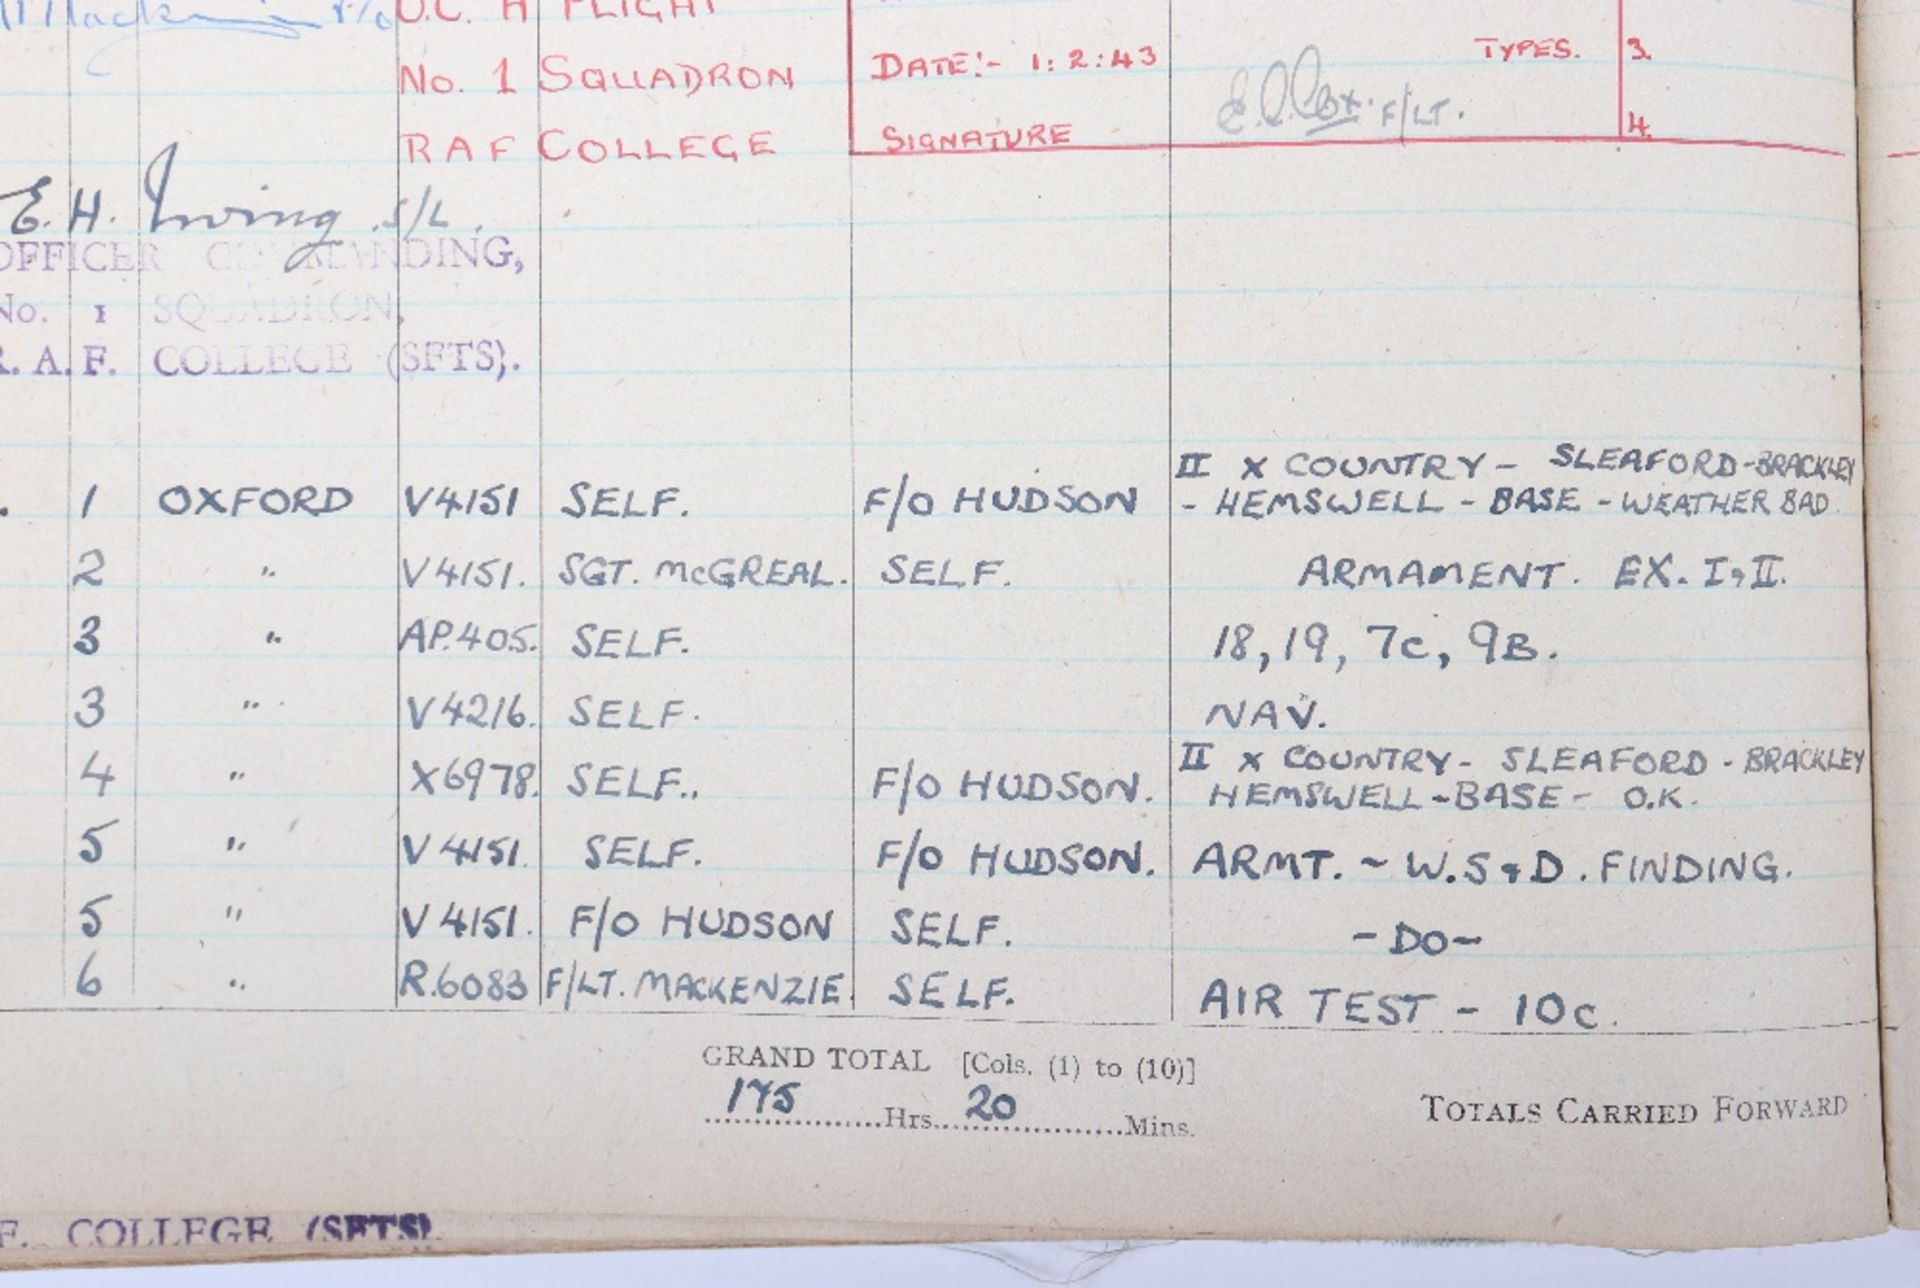 F/O O.C. H FLIGHT
No. 1 SQUADRON
RAF COLLEGE
DATE:- 1:2:43
SIGNATURE
F/LT.
TYPES. 3.
4.
E. H. Irving S/L.
OFFICER COMMANDING,
No. 1 SQUADRON,
R. A. F. COLLEGE (SFTS).
1 OXFORD V4151 SELF. F/O HUDSON II X COUNTRY - SLEAFORD - BRACKLEY
- HEMSWELL - BASE - WEATHER BAD.
2 " V4151. SGT. McGREAL. SELF. ARMAMENT. EX. I & II.
3 " AP.405. SELF. 18, 19, 7c, 9B.
3 " V4216. SELF. NAV.
4 " X6978. SELF.. F/O HUDSON. II X COUNTRY - SLEAFORD - BRACKLEY
HEMSWELL - BASE - O.K.
5 " V4151. SELF. F/O HUDSON. ARMT. ~ W.S & D. FINDING.
5 " V4151. F/O HUDSON SELF. - DO -
6 " R.6083 F/LT. MACKENZIE. SELF. AIR TEST - 10c.
GRAND TOTAL [Cols. (1) to (10)]
175 Hrs. 20 Mins.
TOTALS CARRIED FORWARD
F. COLLEGE (SFTS).